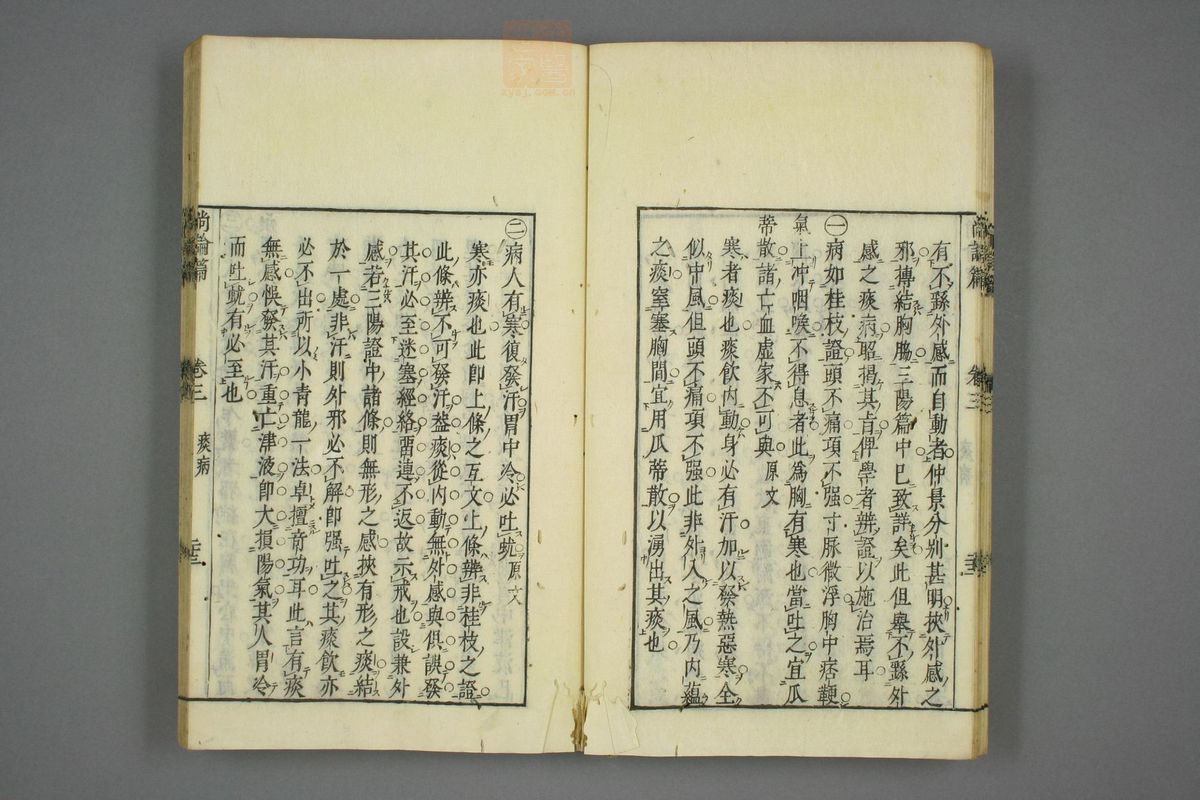 有不繇外感而自動者仲景分別甚明挾外感之
邪搏結胸脇三陽篇中已致詳矣此但舉不繇外
感之痰病昭揭其旨俾學者辨證以施治焉耳
㊀病如桂枝證頭不痛項不强寸脉微浮胸中痞鞕
氣上冲咽喉不得息者此爲胸有寒也當吐之宜瓜
蒂散諸亡血虛家不可與 原文
寒者痰也痰飲內動身必有汗加以發熱惡寒全
似中風但頭不痛項不强此非外入之風乃內蘊
之痰窒塞胸間宜用瓜蒂散以湧出其痰也
尚論篇 卷三
㊁病人有寒復發汗胃中冷必吐蚘 原文
寒亦痰也此卽上條之互文上條辨非桂枝之證
此條辨不可發汗葢痰從內動無外感與俱誤發
其汗必至迷塞經絡畱連不返故示戒也設兼外
感若三陽證中諸條則無形之感挾有形之痰結
於一處非汗則外邪必不解卽强吐之其痰飲亦
必不出所以小青龍一法卓擅竒功耳此言有痰
無感悞發其汗重亡津液卽大損陽氣其人胃冷
而吐蚘有必至也
尚論篇 卷三 痰病 二十三
zysj.com.cn